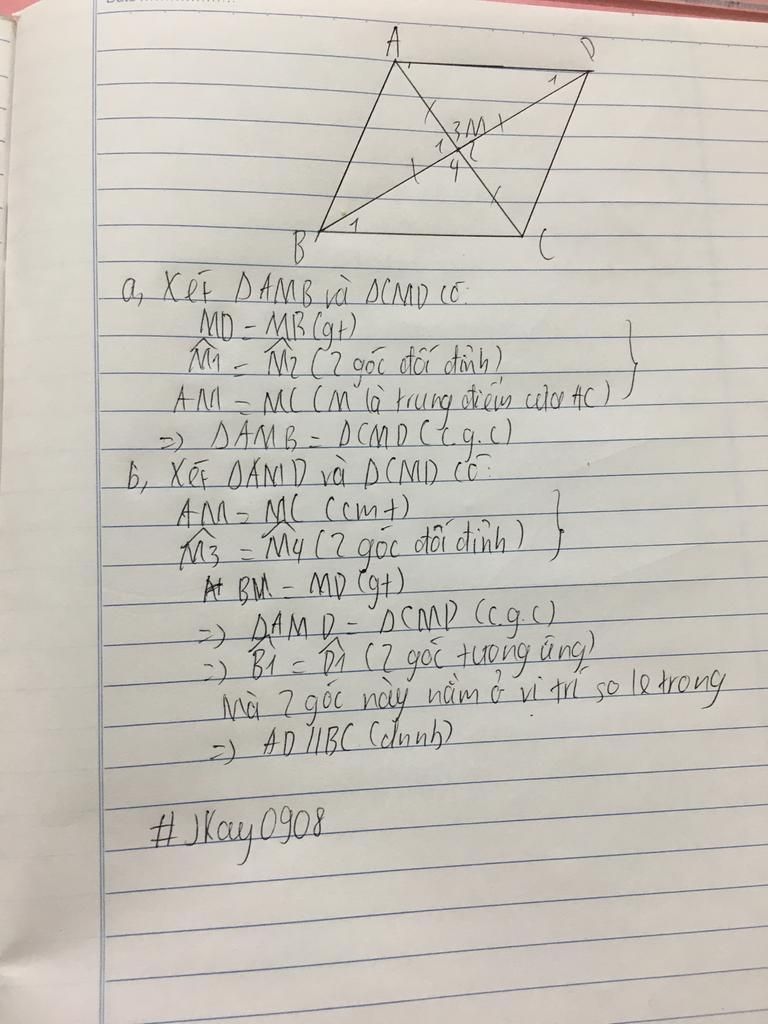 A
D
1
3 M
1 2
4
B 1
C
a, Xét ΔAMB và ΔCMD có:
MD = MB (gt)
M̂1 = M̂2 (2 góc đối đỉnh)
AM = MC (M là trung điểm của AC)
=> ΔAMB = ΔCMD (c.g.c)
b, Xét ΔAMD và ΔCMD có:
AM = MC (cmt)
M̂3 = M̂4 (2 góc đối đỉnh)
BM = MD (gt)
=> ΔAMD = ΔCMD (c.g.c)
=> B̂1 = D̂1 (2 góc tương ứng)
Mà 2 góc này nằm ở vị trí so le trong
=> AD // BC (dhnb)
#JKay0908